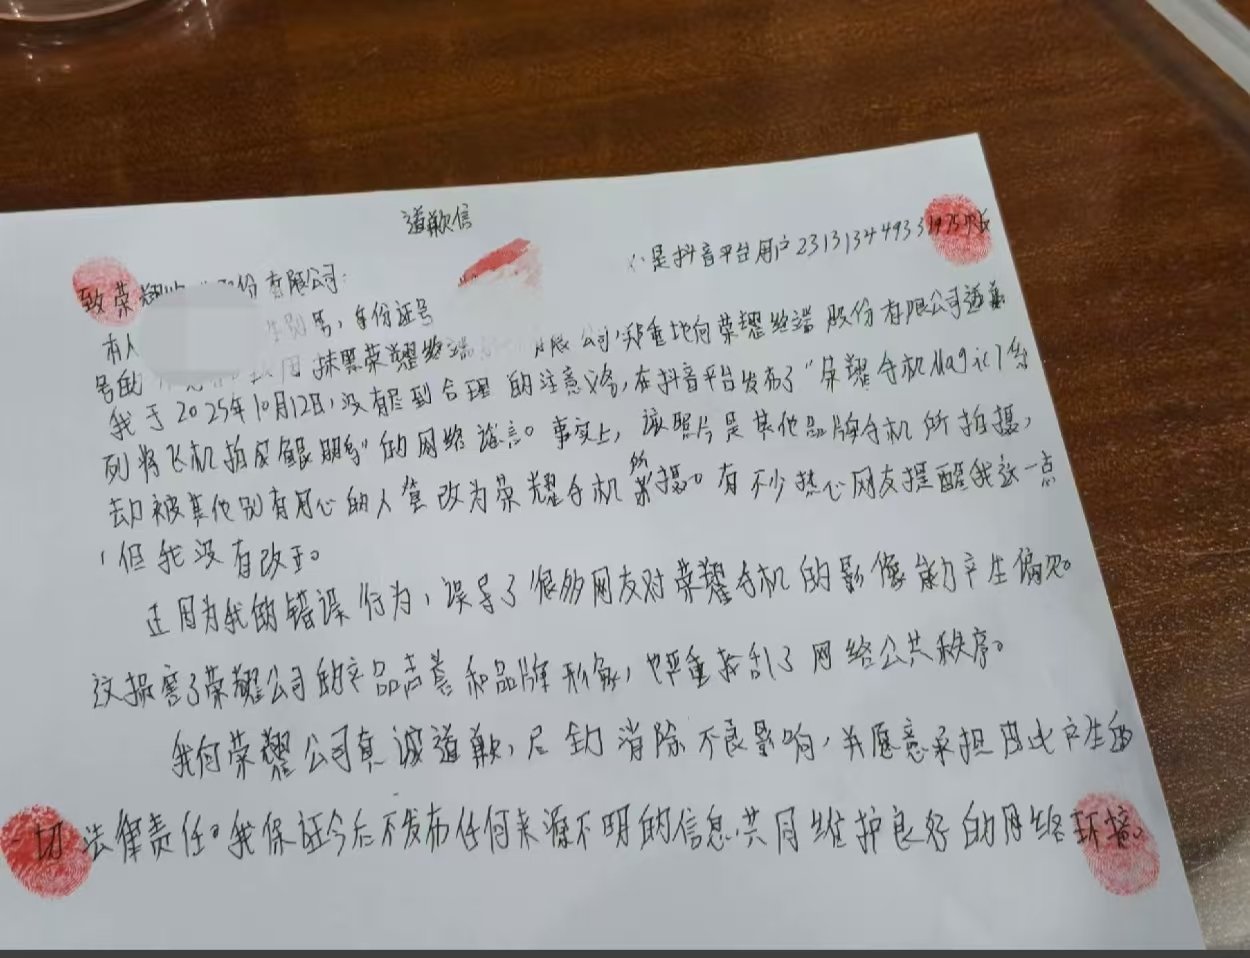 道歉信
致荣耀 股份有限公司:
本人 性别男,身份证号 是抖音平台用户231313449331975账
号的 抹黑荣耀终端 有限公司,郑重地向荣耀终端股份有限公司道歉
我于2025年10月12日,没有尽到合理的注意义务,在抖音平台发布了“荣耀手机Magic
列将飞机拍成鲲鹏”的网络谣言。事实上,该照片是其他品牌手机所拍摄,
却被其他别有用心的人篡改为荣耀手机所拍摄。有不少热心网友提醒我这一点
,但我没有改正。
正因为我的错误行为,误导了很多网友对荣耀手机的影像能力产生偏见。
这损害了荣耀公司的产品声誉和品牌形象,也严重扰乱了网络公共秩序。
我向荣耀公司真诚道歉,尽力消除不良影响,并愿意承担因此产生的
一切法律责任。我保证今后不发布任何来源不明的信息,共同维护良好的网络环境。